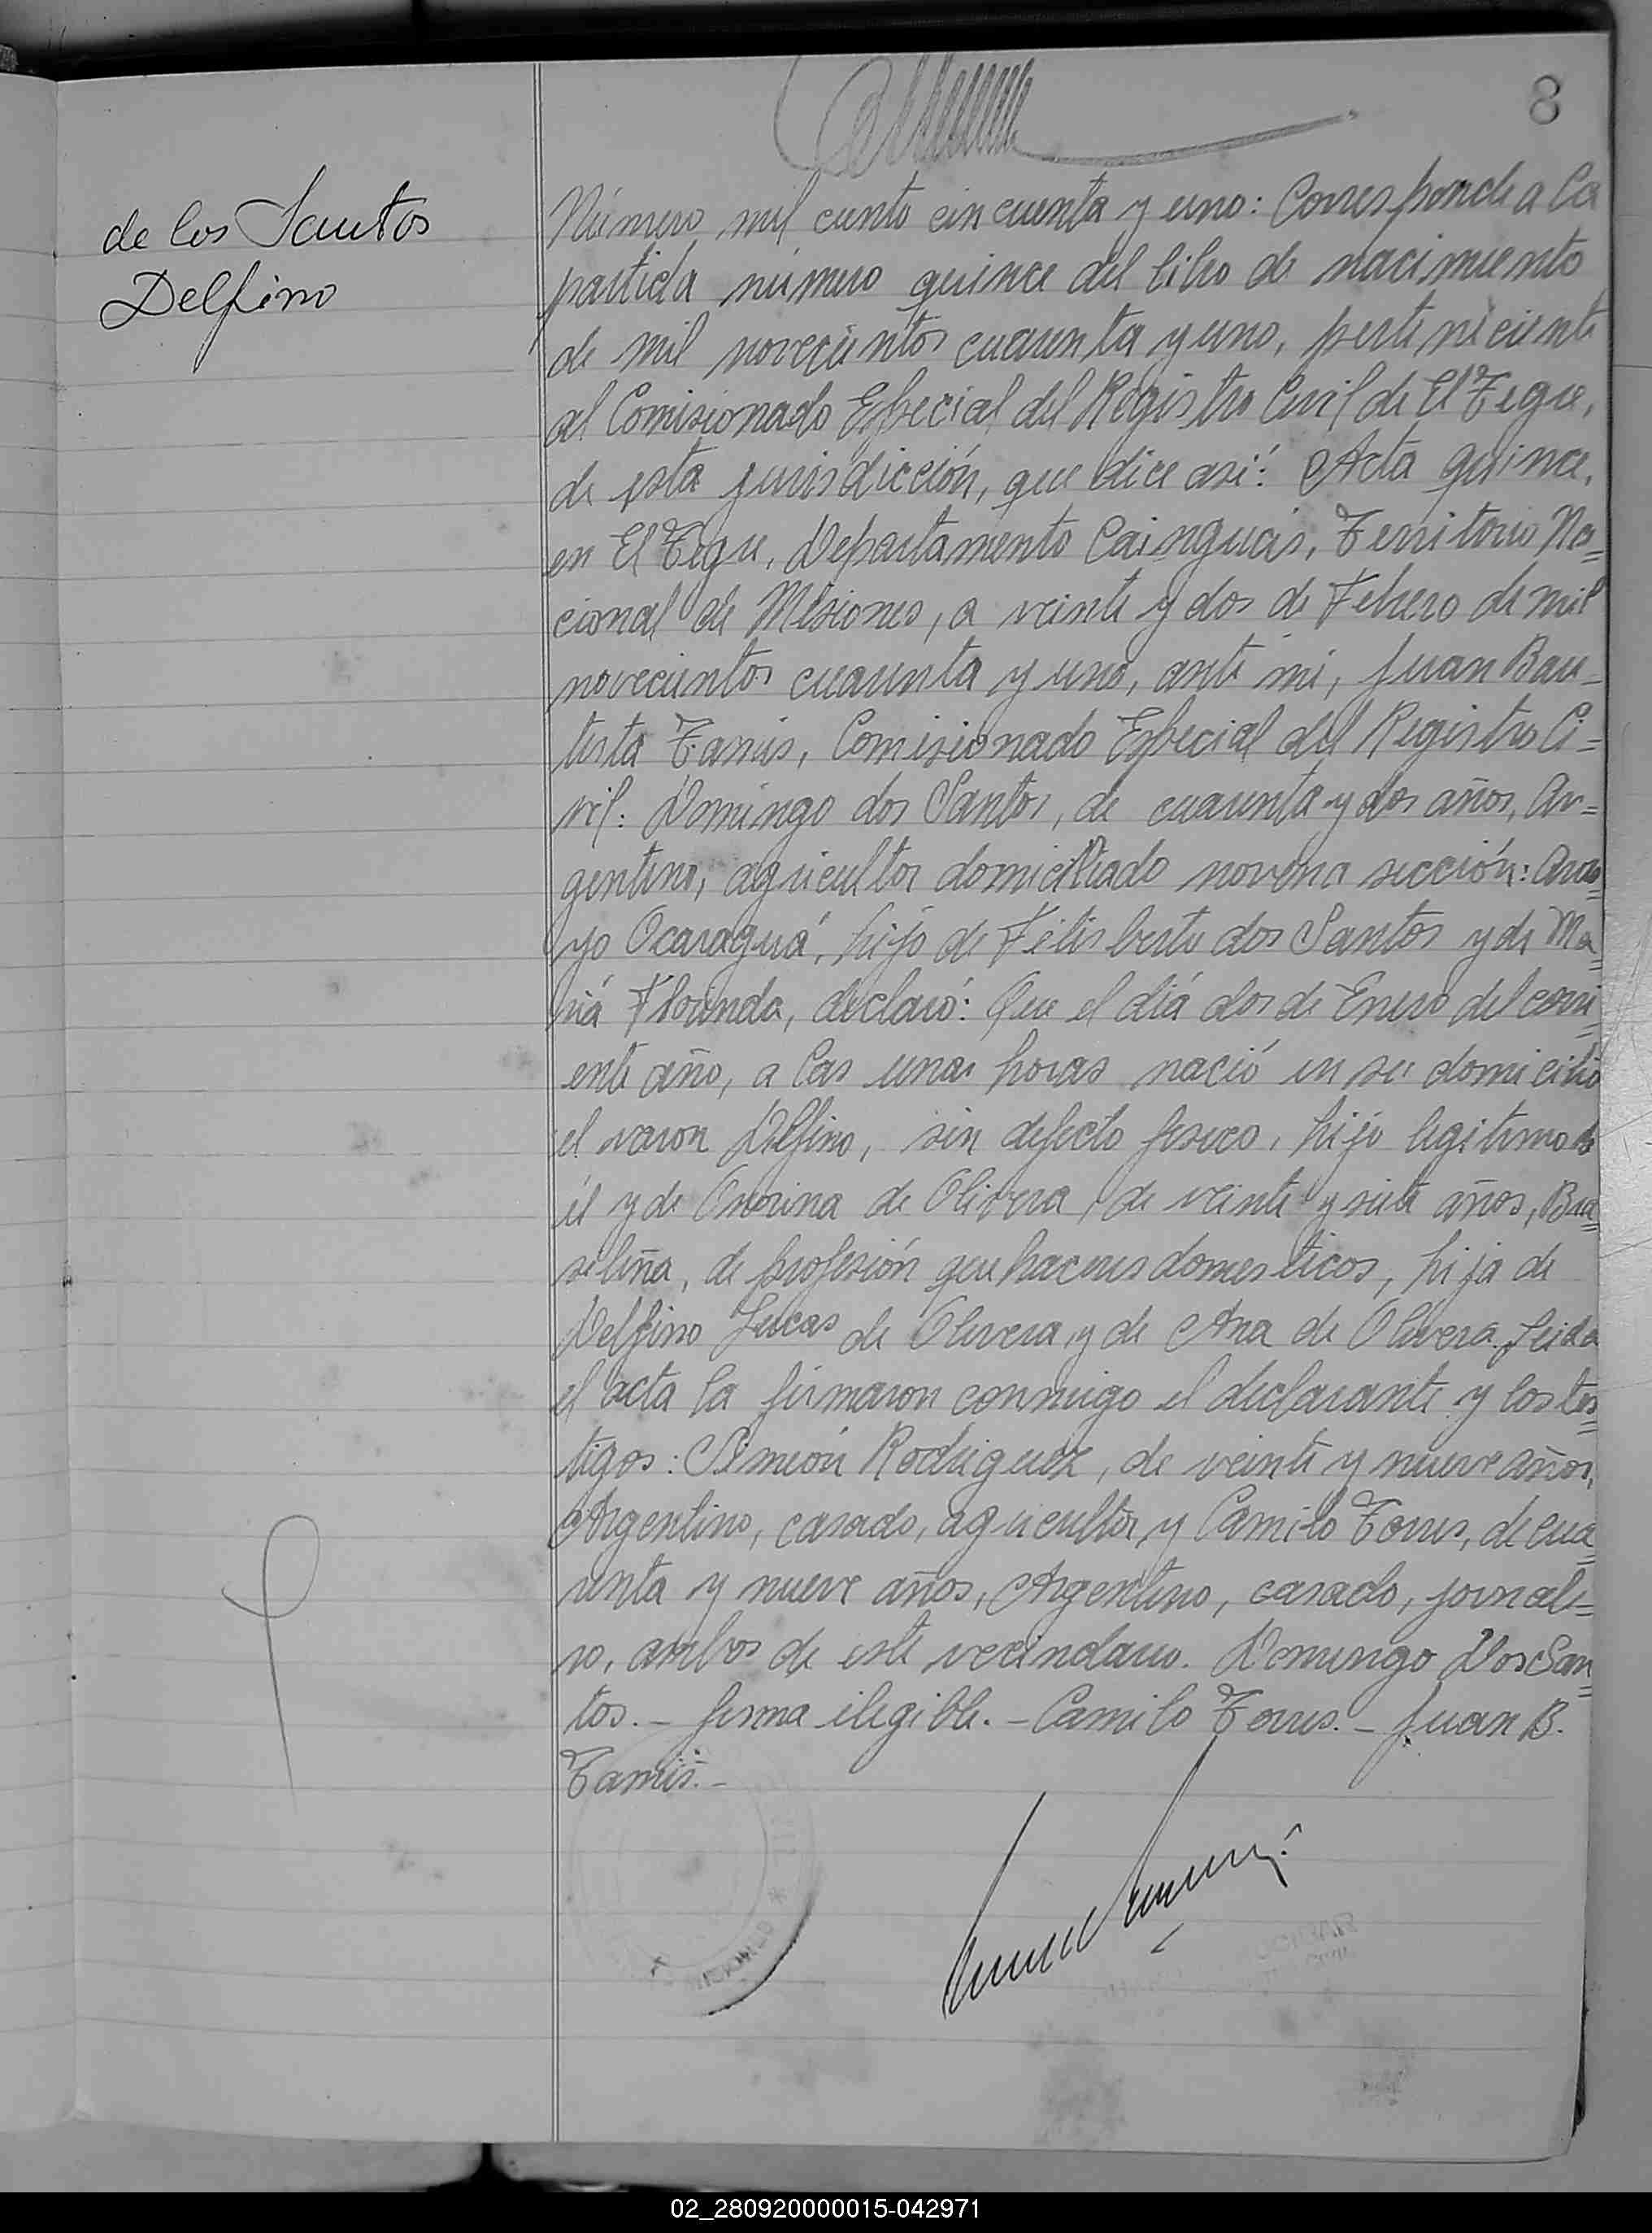 8
de los Santos
Delfino
Número mil ciento cincuenta y uno: Corresponde a la
partida número quince del libro de nacimiento
de mil novecientos cuarenta y uno, perteneciente
al Comisionado Especial del Registro Civil de El Tegue,
de esta jurisdicción, que dice así: Acta quince,
en El Tegue, Departamento Cainguás, Territorio Na=
cional de Misiones, a veinte y dos de Febrero de mil
novecientos cuarenta y uno, ante mi, Juan Bau=
tista Tamis, Comisionado Especial del Registro Ci=
vil: Domingo dos Santos, de cuarenta y dos años, Ar=
gentino, agricultor domiciliado novena sección: Arro=
yo Ocaraguá, hijo de Felisberto dos Santos y de Ma=
riá Florinda, declaró: Que el diá dos de Enero del corri=
ente año, a las una horas nació en su domicilio
el varon Delfino, sin defecto fisico, hijo legitimo de
él y de Onorina de Olivera, de veinte y siete años, Bra=
sileña, de profesión quehaceres domesticos, hija de
Delfino Lucas de Olivera, y de Ana de Olivera. Leida
el acta la firmaron conmigo el declarante y los tes=
tigos: Simeón Rodriguez, de veinte y nueve años,
Argentino, casado, agricultor, y Camilo Torres, de cua=
renta y nueve años, Argentino, casado, jornale=
ro, ambos de este vecindario. Domingo Dos San=
tos. - firma ilegible. - Camilo Torres. - Juan B.
Tamis. -
02_280920000015-042971